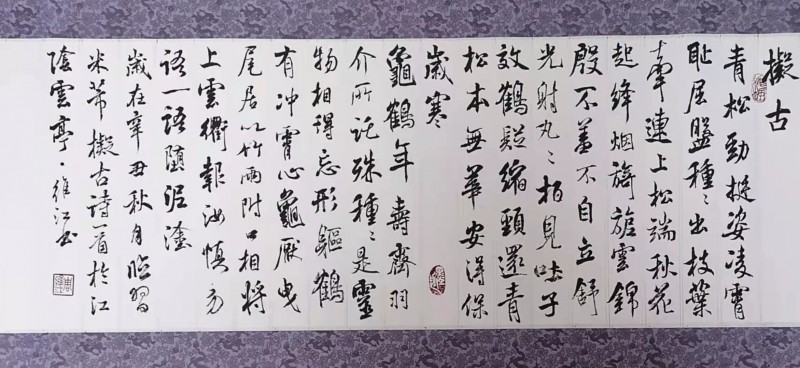 擬古
青松勁挺姿凌霄
耻屈盤種〻出枝葉
牽連上松端秋花
起絳烟旖旎雲錦
殷不羞不自立舒
光射丸〻柏見吐子
效鶴疑縮頸還青
松本無華安得保
歲寒
龜鶴年壽齊羽
介所託殊種〻是靈
物相得忘形軀鶴
有冲霄心龜厭曳
尾居以竹兩附口相將
上雲衢報汝慎勿
語一語墮泥塗
歲在辛丑秋月臨習
米芾擬古詩二首於江
陰雲亭·維江書